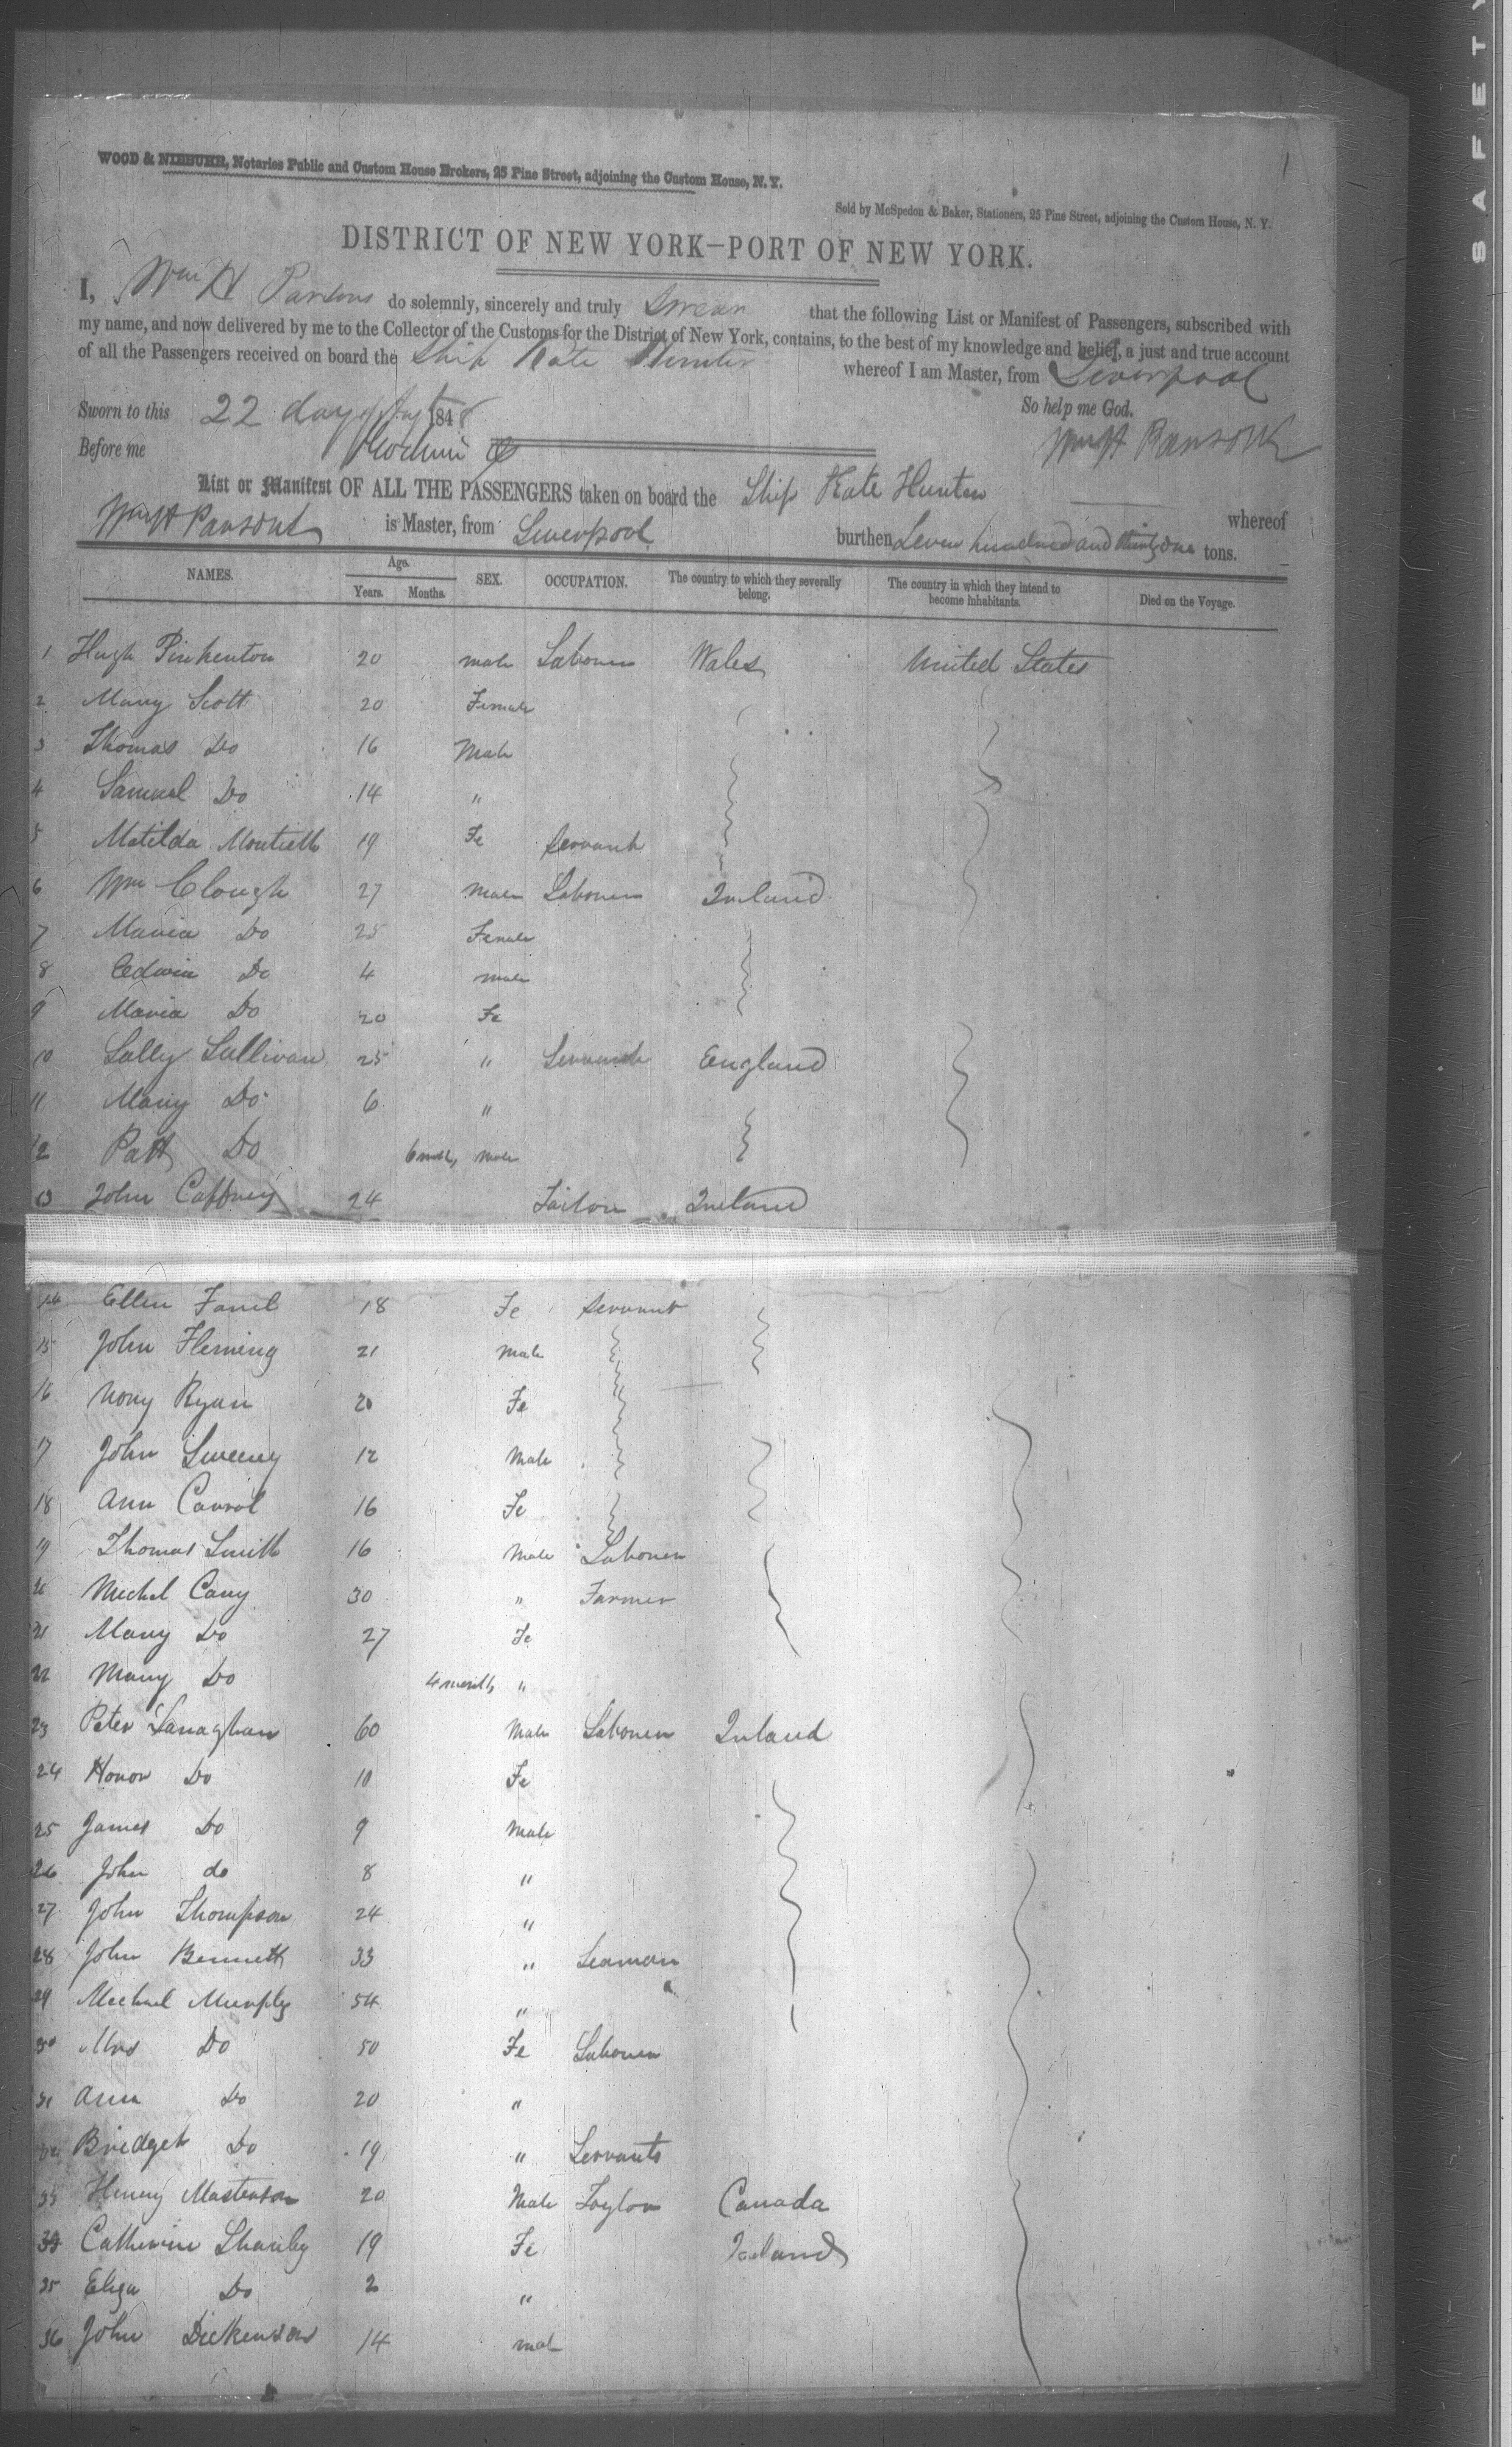 SAFETY
WOOD & NIEBUHR, Notaries Public and Custom House Brokers, 25 Pine Street, adjoining the Custom House, N. Y.
Sold by McSpedon & Baker, Stationers, 25 Pine Street, adjoining the Custom House, N. Y.
DISTRICT OF NEW YORK—PORT OF NEW YORK.
I, Wm H Parsons do solemnly, sincerely and truly Swear that the following List or Manifest of Passengers, subscribed with
my name, and now delivered by me to the Collector of the Customs for the District of New York, contains, to the best of my knowledge and belief, a just and true account
of all the Passengers received on board the Ship Kate Hunter whereof I am Master, from Liverpool
So help me God.
Sworn to this 22 day of 1848
Before me
Wm H Parsons
List or Manifest OF ALL THE PASSENGERS taken on board the Ship Kate Hunter whereof
Wm H Parsons is Master, from Liverpool burthen Seven hundred and thirty one tons.
NAMES. Age. Years. Months. SEX. OCCUPATION. The country to which they severally belong. The country in which they intend to become inhabitants. Died on the Voyage.
1 Hugh Pinkenton 20 male Labourer Wales United States
2 Mary Scott 20 Female
3 Thomas Do 16 Male
4 Samuel Do 14 "
5 Matilda Montieth 19 Fe Servant
6 Wm Clough 27 Male Labourer Ireland
7 Maria Do 25 Female
8 Edwin Do 4 male
9 Maria Do 20 Fe
10 Sally Sullivan 25 " Servant England
11 Mary Do 6 "
12 Patt Do 6 mths male
13 John Caffney 24 Tailor Ireland
14 Ellen 18 Fe Servant
15 John Fleming 21 Male
16 Nony Ryan 20 Fe
17 John Sweeny 12 Male
18 Ann Carrol 16 Fe
19 Thomas Smith 16 Male Labourer
20 Michel Cany 30 " Farmer
21 Mary Do 27 Fe
22 Mary Do 4 months "
23 Peter Lanaghan 60 Male Labourer Ireland
24 Honor Do 10 Fe
25 James Do 9 Male
26 John do 8 "
27 John Thompson 24 "
28 John Bennett 33 " Seaman
29 Michael Murphy 54 "
30 Mrs Do 50 Fe Labourer
31 Ann Do 20 "
32 Bridget Do 19 " Servants
33 Henry Masterson 20 Male Taylor Canada
34 Catherine Shanly 19 Fe Ireland
35 Eliza Do 2 "
36 John Dickenson 14 mal